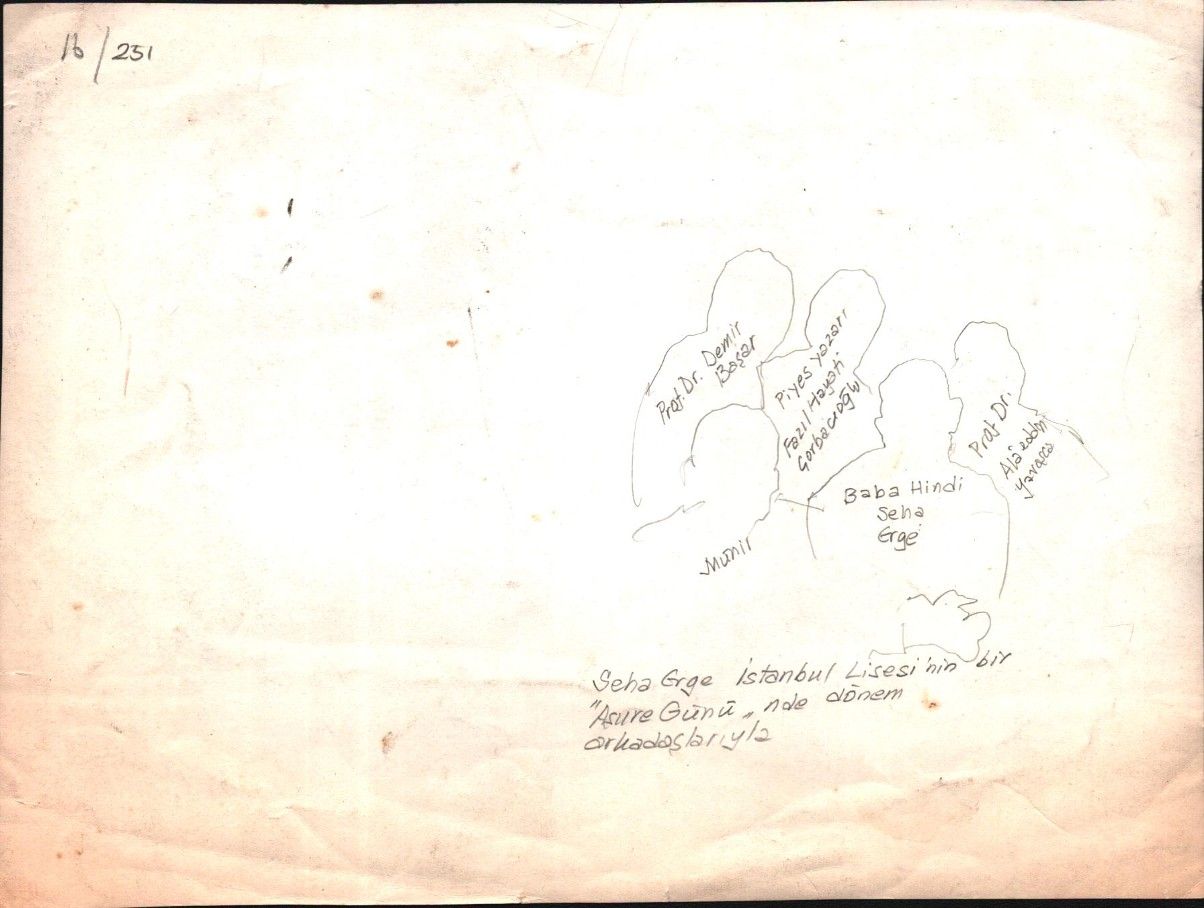 16/231
Prof. Dr. Demir
Başar
Piyes yazarı
Fazıl Hayati
Çorbacıoğlu
Prof. Dr.
Alâeddin
Yavaşca
Baba Hindi
Seha
Erge
Münir
Seha Erge İstanbul Lisesi'nin bir
"Aşure Günü„ nde dönem
arkadaşlarıyla